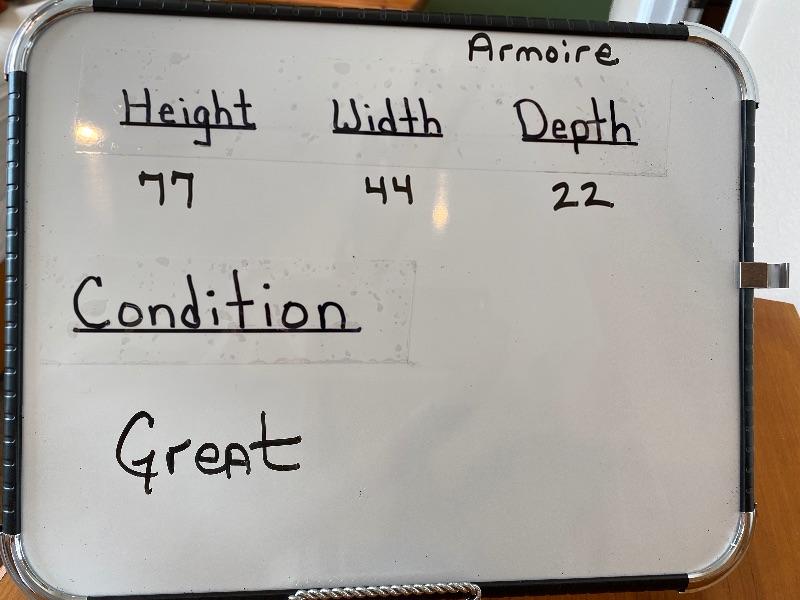 Armoire
Height Width Depth
77 44 22
Condition
Great